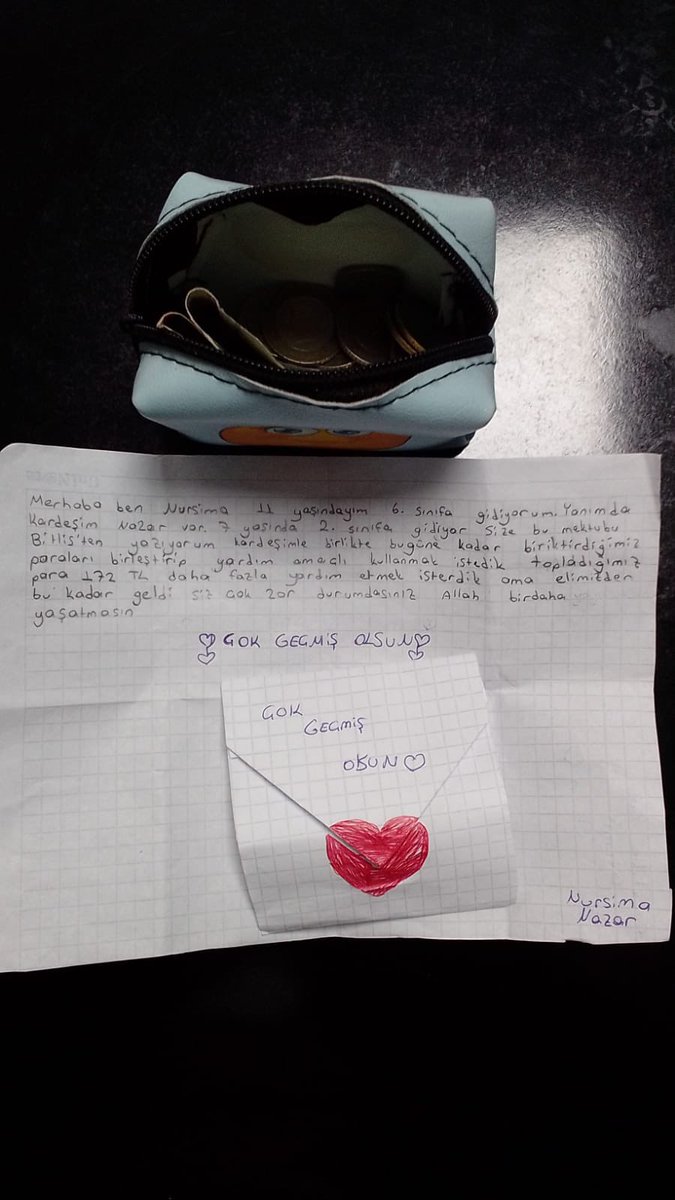 Merhaba ben Nursima 11 yaşındayım 6. sınıfa gidiyorum. Yanımda
Kardeşim Nazar var. 7 yaşında 2. sınıfa gidiyor Size bu mektubu
Bitlis'ten yazıyorum kardeşimle birlikte bugüne kadar biriktirdiğimiz
paraları birleştirip yardım amaçlı kullanmak istedik topladığımız
para 172 TL daha fazla yardım etmek isterdik ama elimizden
bu kadar geldi siz çok zor durumdasınız Allah birdaha
yaşatmasın
ÇOK GEÇMİŞ OLSUN
ÇOK
GEÇMİŞ
OLSUN
Nursima
Nazar